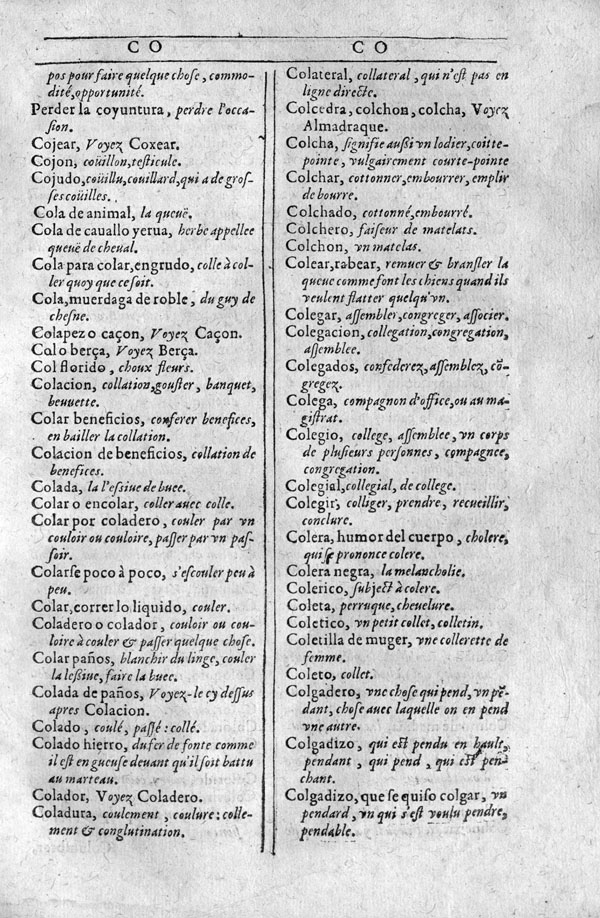 CO
CO
pos pour faire quelque chose, commo-
dité, opportunité.
Perder la coyuntura, perdre l'occa-
sion.
Cojear, Voyez Coxear.
Cojon, coüillon, testicule.
Cojudo, coüillu, couillard, qui a de gros-
ses coüilles.
Cola de animal, la queuë.
Cola de cauallo yerua, herbe appellee
queuë de cheual.
Cola para colar, engrudo, colle à col-
ler quoy que ce soit.
Cola, muerdaga de roble, du guy de
chesne.
Colapez o caçon, Voyez Caçon.
Col o berça, Voyez Berça.
Col florido, choux fleurs.
Colacion, collation, gouster, banquet,
beuuette.
Colar beneficios, conferer benefices,
en bailler la collation.
Colacion de beneficios, collation de
benefices.
Colada, la lessiue de buee.
Colar o encolar, coller auec colle.
Colar por coladero, couler par vn
couloir ou couloire, passer par vn pas-
soir.
Colarse poco à poco, s'escouler peu à
peu.
Colar, correr lo liquido, couler.
Coladero o colador, couloir ou cou-
loire à couler & passer quelque chose.
Colar paños, blanchir du linge, couler
la lessiue, faire la buee.
Colada de paños, Voyez-le cy dessus
apres Colacion.
Colado, coulé, passé: collé.
Colado hierro, du fer de fonte comme
il est en gueuse deuant qu'il soit battu
au marteau.
Colador, Voyez Coladero.
Coladura, coulement, coulure: colle-
ment & conglutination.
Colateral, collateral, qui n'est pas en
ligne directe.
Colcedra, colchon, colcha, Voyez
Almadraque.
Colcha, signifie aussi vn lodier, coitte-
pointe, vulgairement courte-pointe
Colchar, cottonner, embourrer, emplir
de bourre.
Colchado, cottonné, embourré.
Colchero, faiseur de matelats.
Colchon, vn matelas.
Colear, rabear, remuer & bransler la
queue comme font les chiens quand ils
veulent flatter quelqu'vn.
Colegar, assembler, congreger, associer.
Colegacion, collegation, congregation,
assemblee.
Colegados, confederez, assemblez, cõ-
gregez.
Colega, compagnon d'office, ou au ma-
gistrat.
Colegio, college, assemblee, vn corps
de plusieurs personnes, compagnee,
congregation.
Colegial, collegial, de college.
Colegir, colliger, prendre, recueillir,
conclure.
Colera, humor del cuerpo, cholere,
qui se prononce colere.
Colera negra, la melancholie.
Colerico, subject à colere.
Coleta, perruque, cheuelure.
Coletico, vn petit collet, colletin.
Coletilla de muger, vne collerette de
femme.
Coleto, collet.
Colgadero, vne chose qui pend, vn pẽ-
dant, chose auec laquelle on en pend
vne autre.
Colgadizo, qui est pendu en haut,
pendant, qui pend, qui est pen-
chant.
Colgadizo, que se quiso colgar, vn
pendard, vn qui s'est voulu pendre,
pendable.